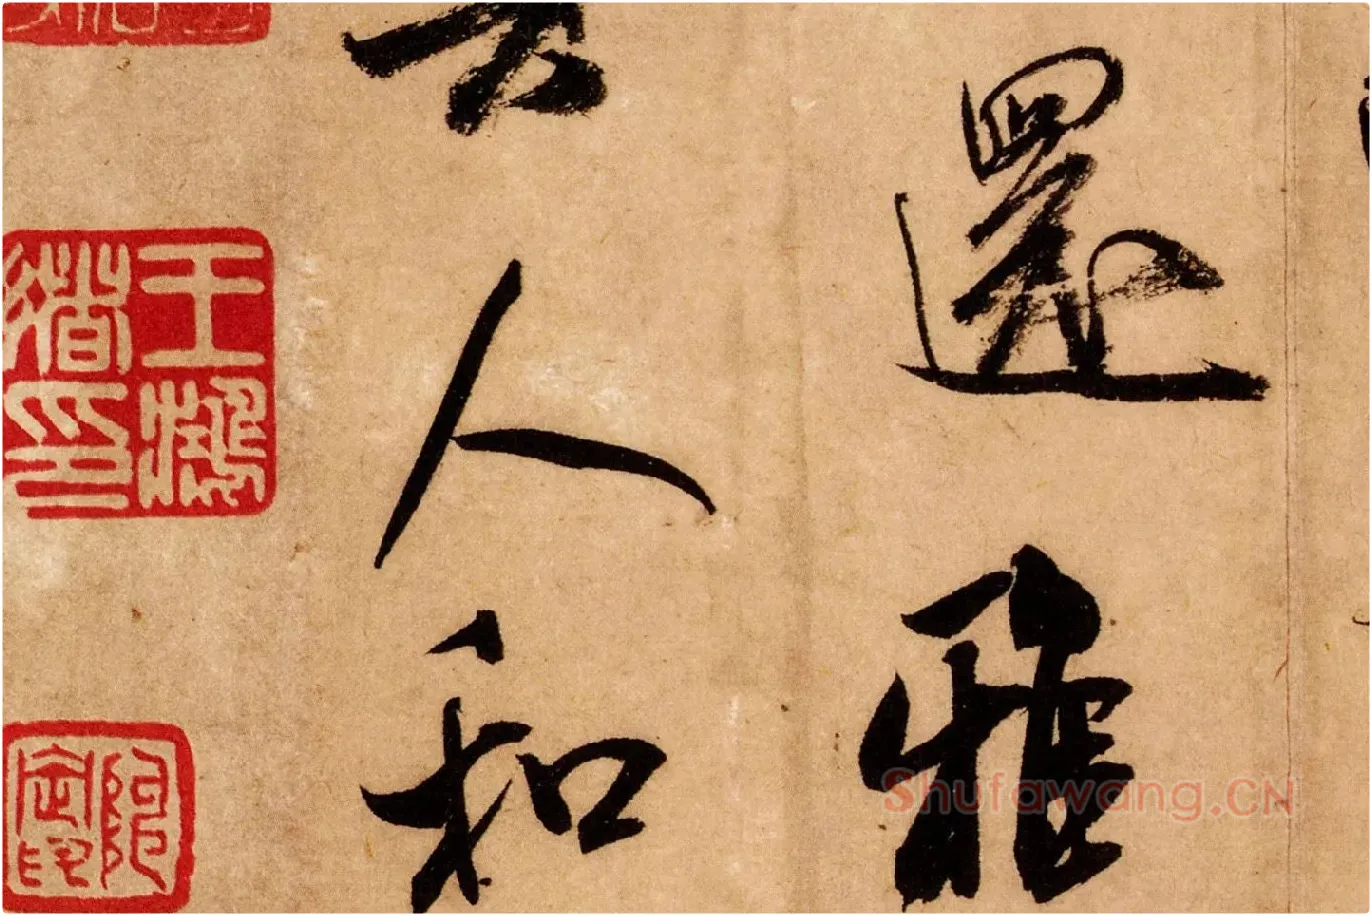 還雅
人和
王鴻緒印
Shufawang.CN